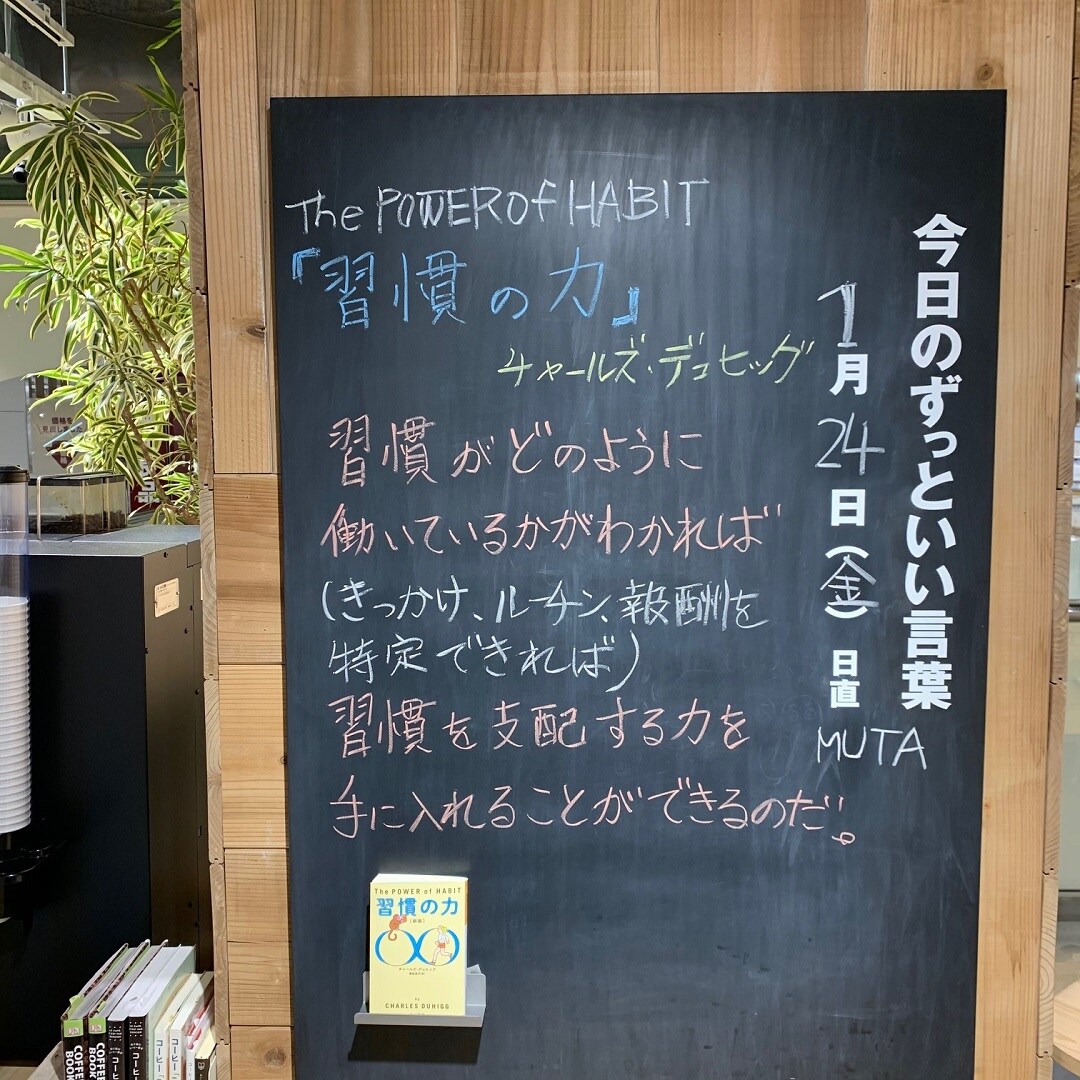 今日のずっといい言葉
1月24日(金) 日直 MUTA
The POWER of HABIT
『習慣の力』
チャールズ・デュヒッグ
習慣がどのように
働いているかがわかれば
(きっかけ、ルーチン、報酬を
特定できれば)
習慣を支配する力を
手に入れることができるのだ。
The POWER of HABIT
習慣の力
[新版]
チャールズ・デュヒッグ
by
CHARLES DUHIGG
価格を
見直しました
COFFEE BOOK
COFFEE BOOK
コーヒー
コーヒー